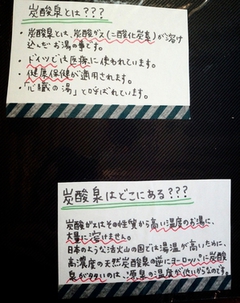 炭酸泉とは???
・炭酸泉とは、炭酸ガス(二酸化炭素)が溶け
込んだお湯の事です。
・ドイツでは医療に使われています。
・健康保健が適用されます。
・「心臓の湯」と呼ばれています。
炭酸泉はどこにある???
炭酸ガスはその性質から高い温度のお湯に、
大量に溶けません。
日本のような活火山の国では湯温が高いために、
高濃度の天然炭酸泉の逆にヨーロッパに炭酸
泉が多いのは、源泉の温度が低いからなのです。